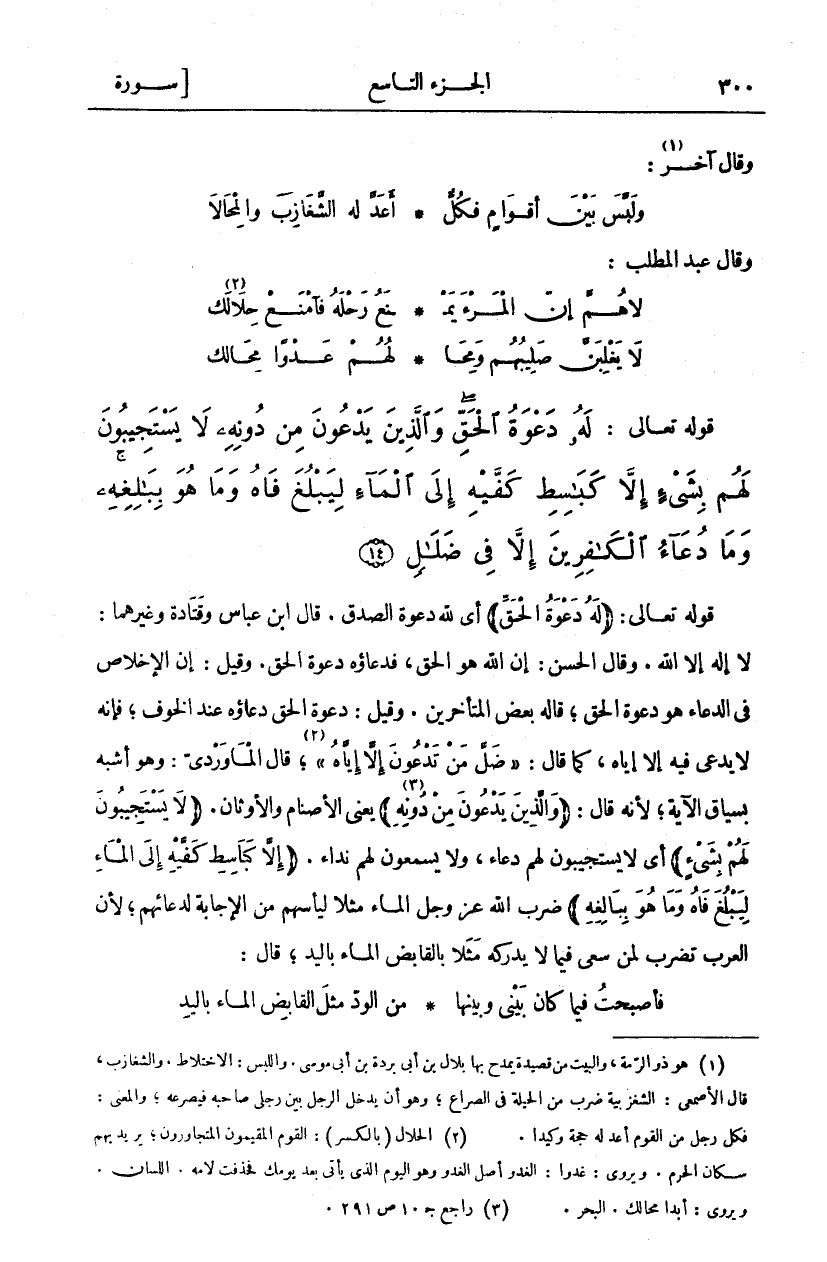 ٣٠٠ الجزء التاسع [سورة
وقال آخر (١) :
ولَبَّسَ بَيْنَ أقوامٍ فكُلٌّ * أعَدَّ له الشَّغازِبَ والمِحَالاَ
وقال عبد المطلب :
لاهُمَّ إنّ المَرْءَ يَمْـ * ـنَعُ رَحْلَهُ فَٱمْنَعْ حِلاَلَكْ (٢)
لَا يَغْلِبَنَّ صَلِيبُهُم ومِحَا * لُهُمْ عَدْوًا مِحَالَك
قوله تعالى : لَهُۥ دَعْوَةُ ٱلْحَقِّ وَٱلَّذِينَ يَدْعُونَ مِن دُونِهِۦ لَا يَسْتَجِيبُونَ
لَهُم بِشَىْءٍ إِلَّا كَبَـٰسِطِ كَفَّيْهِ إِلَى ٱلْمَآءِ لِيَبْلُغَ فَاهُ وَمَا هُوَ بِبَـٰلِغِهِۦ
وَمَا دُعَآءُ ٱلْكَـٰفِرِينَ إِلَّا فِى ضَلَـٰلٍ ﴿١٤﴾
قوله تعالى: ﴿لَهُ دَعْوَةُ الْحَقِّ﴾ أى لله دعوة الصدق . قال ابن عباس وقَتَادة وغيرهما :
لا إله إلا الله . وقال الحسن : إن الله هو الحق ، فدعاؤه دعوة الحق. وقيل : إن الإخلاص
فى الدعاء هو دعوة الحق ؛ قاله بعض المتأخرين . وقيل : دعوة الحق دعاؤه عند الخوف ؛ فإنه
لا يدعى فيه إلا إياه ، كما قال : « ضَلَّ مَنْ تَدْعُونَ إِلَّا إِيَّاهُ (٢) » ؛ قال المَاوَرْدىّ : وهو أشبه
بسياق الآية ؛ لأنه قال : ﴿وَالَّذِينَ يَدْعُونَ مِنْ دُونِهِ (٣)﴾ يعنى الأصنام والأوثان. ﴿لَا يَسْتَجِيبُونَ
لَهُمْ بِشَىْءٍ﴾ أى لا يستجيبون لهم دعاء ، ولا يسمعون لهم نداء . ﴿إِلَّا كَبَاسِطِ كَفَّيْهِ إِلَى الْمَاءِ
لِيَبْلُغَ فَاهُ وَمَا هُوَ بِبَالِغِهِ﴾ ضرب الله عز وجل الماء مثلا ليأسهم من الإجابة لدعائهم ؛ لأن
العرب تضرب لمن سعى فيما لا يدركه مَثَلا بالقابض الماء باليد ؛ قال :
فأصبحتُ فيما كان بَيْنى وبينها * من الودّ مثلَ القابِض الماء باليدِ
(١) هو ذو الرمة ، والبيت من قصيدة يمدح بها بلال بن أبى بردة بن أبى موسى . واللبس : الاختلاط . والشغازب ،
قال الأصمعى : الشغزبية ضرب من الحيلة فى الصراع ؛ وهو أن يدخل الرجل بين رجلى صاحبه فيصرعه ؛ والمعنى :
فكل رجل من القوم أعد له حجة وكيدا . (٢) الحلال (بالكسر) : القوم المقيمون المتجاورون ؛ يريد بهم
سكان الحرم . ويروى : غدوا : الغدو أصل الغد وهو اليوم الذى يأتى بعد يومك فحذفت لامه . اللسان .
ويروى : أبدا محالك . البحر . (٣) راجع جـ ١٠ ص ٢٩١ .